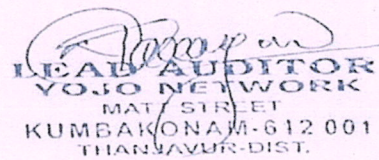 LEAD AUDITOR
YOJO NETWORK
MATT STREET
KUMBAKONAM-612 001
THANJAVUR-DIST.